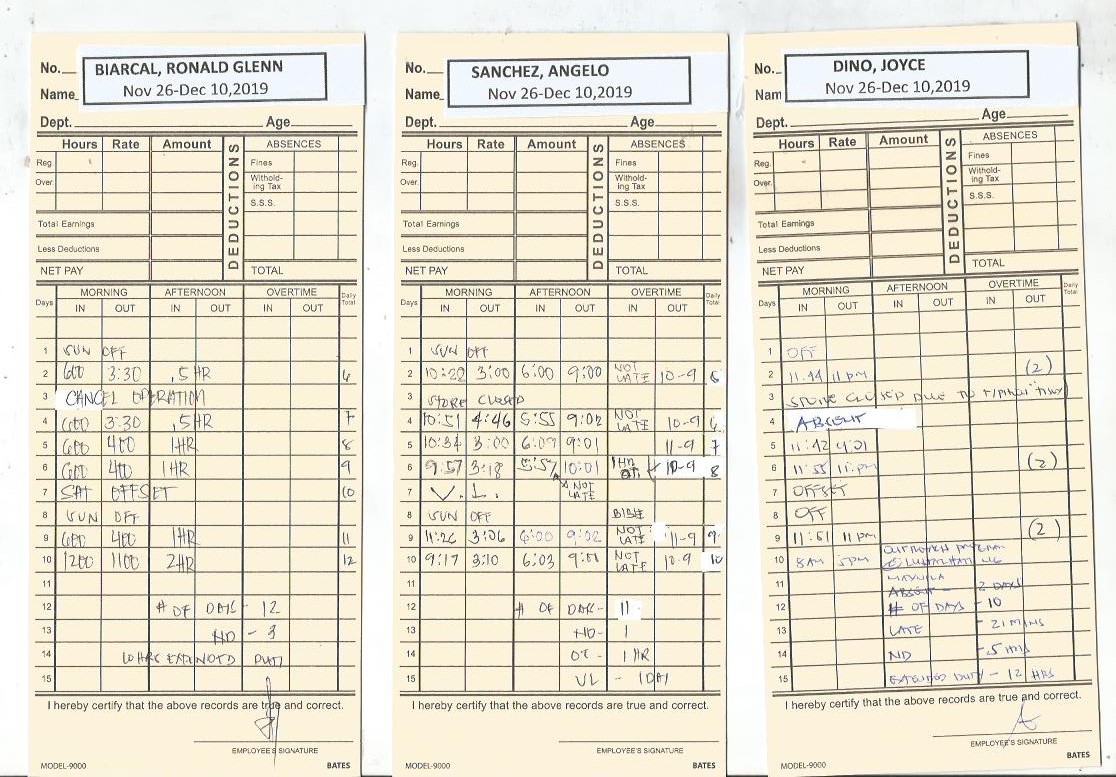 No.
BIARCAL, RONALD GLENN
Name
Nov 26-Dec 10,2019
Dept. Age
Hours Rate Amount DEDUCTIONS ABSENCES
Reg. Fines
Over. Withold-
ing Tax
S.S.S.
Total Earnings
Less Deductions
NET PAY TOTAL
Days MORNING AFTERNOON OVERTIME Daily Total
IN OUT IN OUT IN OUT
1 SUN OFF
2 600 3:30 .5HR 6
3 CANCEL OPERATION
4 600 3:30 .5HR 7
5 600 400 1HR 8
6 600 400 1HR 9
7 SAT OFFSET 10
8 SUN OFF
9 600 400 1HR 11
10 1200 1100 2HR 12
11
12 # OF DAYS - 12
13 ND - 3
14 10HRS EXTENDED DUTY
15
I hereby certify that the above records are true and correct.
EMPLOYEE'S SIGNATURE
MODEL-9000 BATES
No.
SANCHEZ, ANGELO
Name
Nov 26-Dec 10,2019
Dept. Age
Hours Rate Amount DEDUCTIONS ABSENCES
Reg. Fines
Over. Withold-
ing Tax
S.S.S.
Total Earnings
Less Deductions
NET PAY TOTAL
Days MORNING AFTERNOON OVERTIME Daily Total
IN OUT IN OUT IN OUT
1 SUN OFF
2 10:22 3:00 6:00 9:00 NOT LATE 10-9
3 STORE CLOSED
4 10:51 4:46 5:55 9:02 NOT LATE 10-9
5 10:34 3:00 6:09 9:01 11-9 7
6 9:57 3:18 5:57 10:01 1HR OT. 10-9 8
7 V.L. NOT LATE
8 SUN OFF
9 11:26 3:06 6:00 9:02 NOT LATE 11-9 9
10 9:17 3:10 6:03 9:01 NOT LATE 10-9 10
11
12 # OF DAYS- 11
13 ND- 1
14 OT - 1 HR
15 VL - 1DAY
I hereby certify that the above records are true and correct.
EMPLOYEE'S SIGNATURE
MODEL-9000 BATES
No.
DINO, JOYCE
Nam
Nov 26-Dec 10,2019
Dept. Age
Hours Rate Amount DEDUCTIONS ABSENCES
Reg. Fines
Over. Withold-
ing Tax
S.S.S.
Total Earnings
Less Deductions
NET PAY TOTAL
Days MORNING AFTERNOON OVERTIME Daily Total
IN OUT IN OUT IN OUT
1 OFF
2 11:44 11 pm (2)
3 STORE CLOSED DUE TO
4 ABSENT
5 11:42 9:01
6 11:55 11:pm (2)
7 OFFSET
8 OFF
9 11:51 11 pm (2)
10 8AM 5PM OUTREACH PROGRAM
11 MAYNILA
ABSENT - 2 DAYS
12 # OF DAYS - 10
13 LATE - 21 MINS
14 ND
15 EXTENDED DUTY - 12 HRS
I hereby certify that the above records are true and correct.
EMPLOYEE'S SIGNATURE
MODEL-9000 BATES